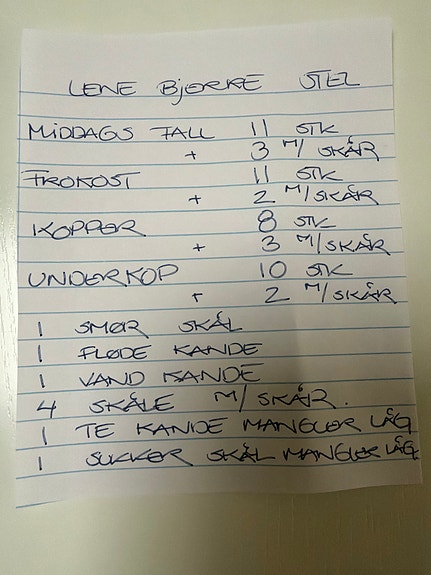 LENE BJERRE STEL
MIDDAGS TALL 11 STK
+ 3 M/SKÅR
FROKOST 11 STK
+ 2 M/SKÅR
KOPPER 8 STK
+ 3 M/SKÅR
UNDERKOP 10 STK
+ 2 M/SKÅR
1 SMØR SKÅL
1 FLØDE KANDE
1 VAND KANDE
4 SKÅLE M/SKÅR.
1 TE KANDE MANGLER LÅG
1 SUKKER SKÅL MANGLER LÅG